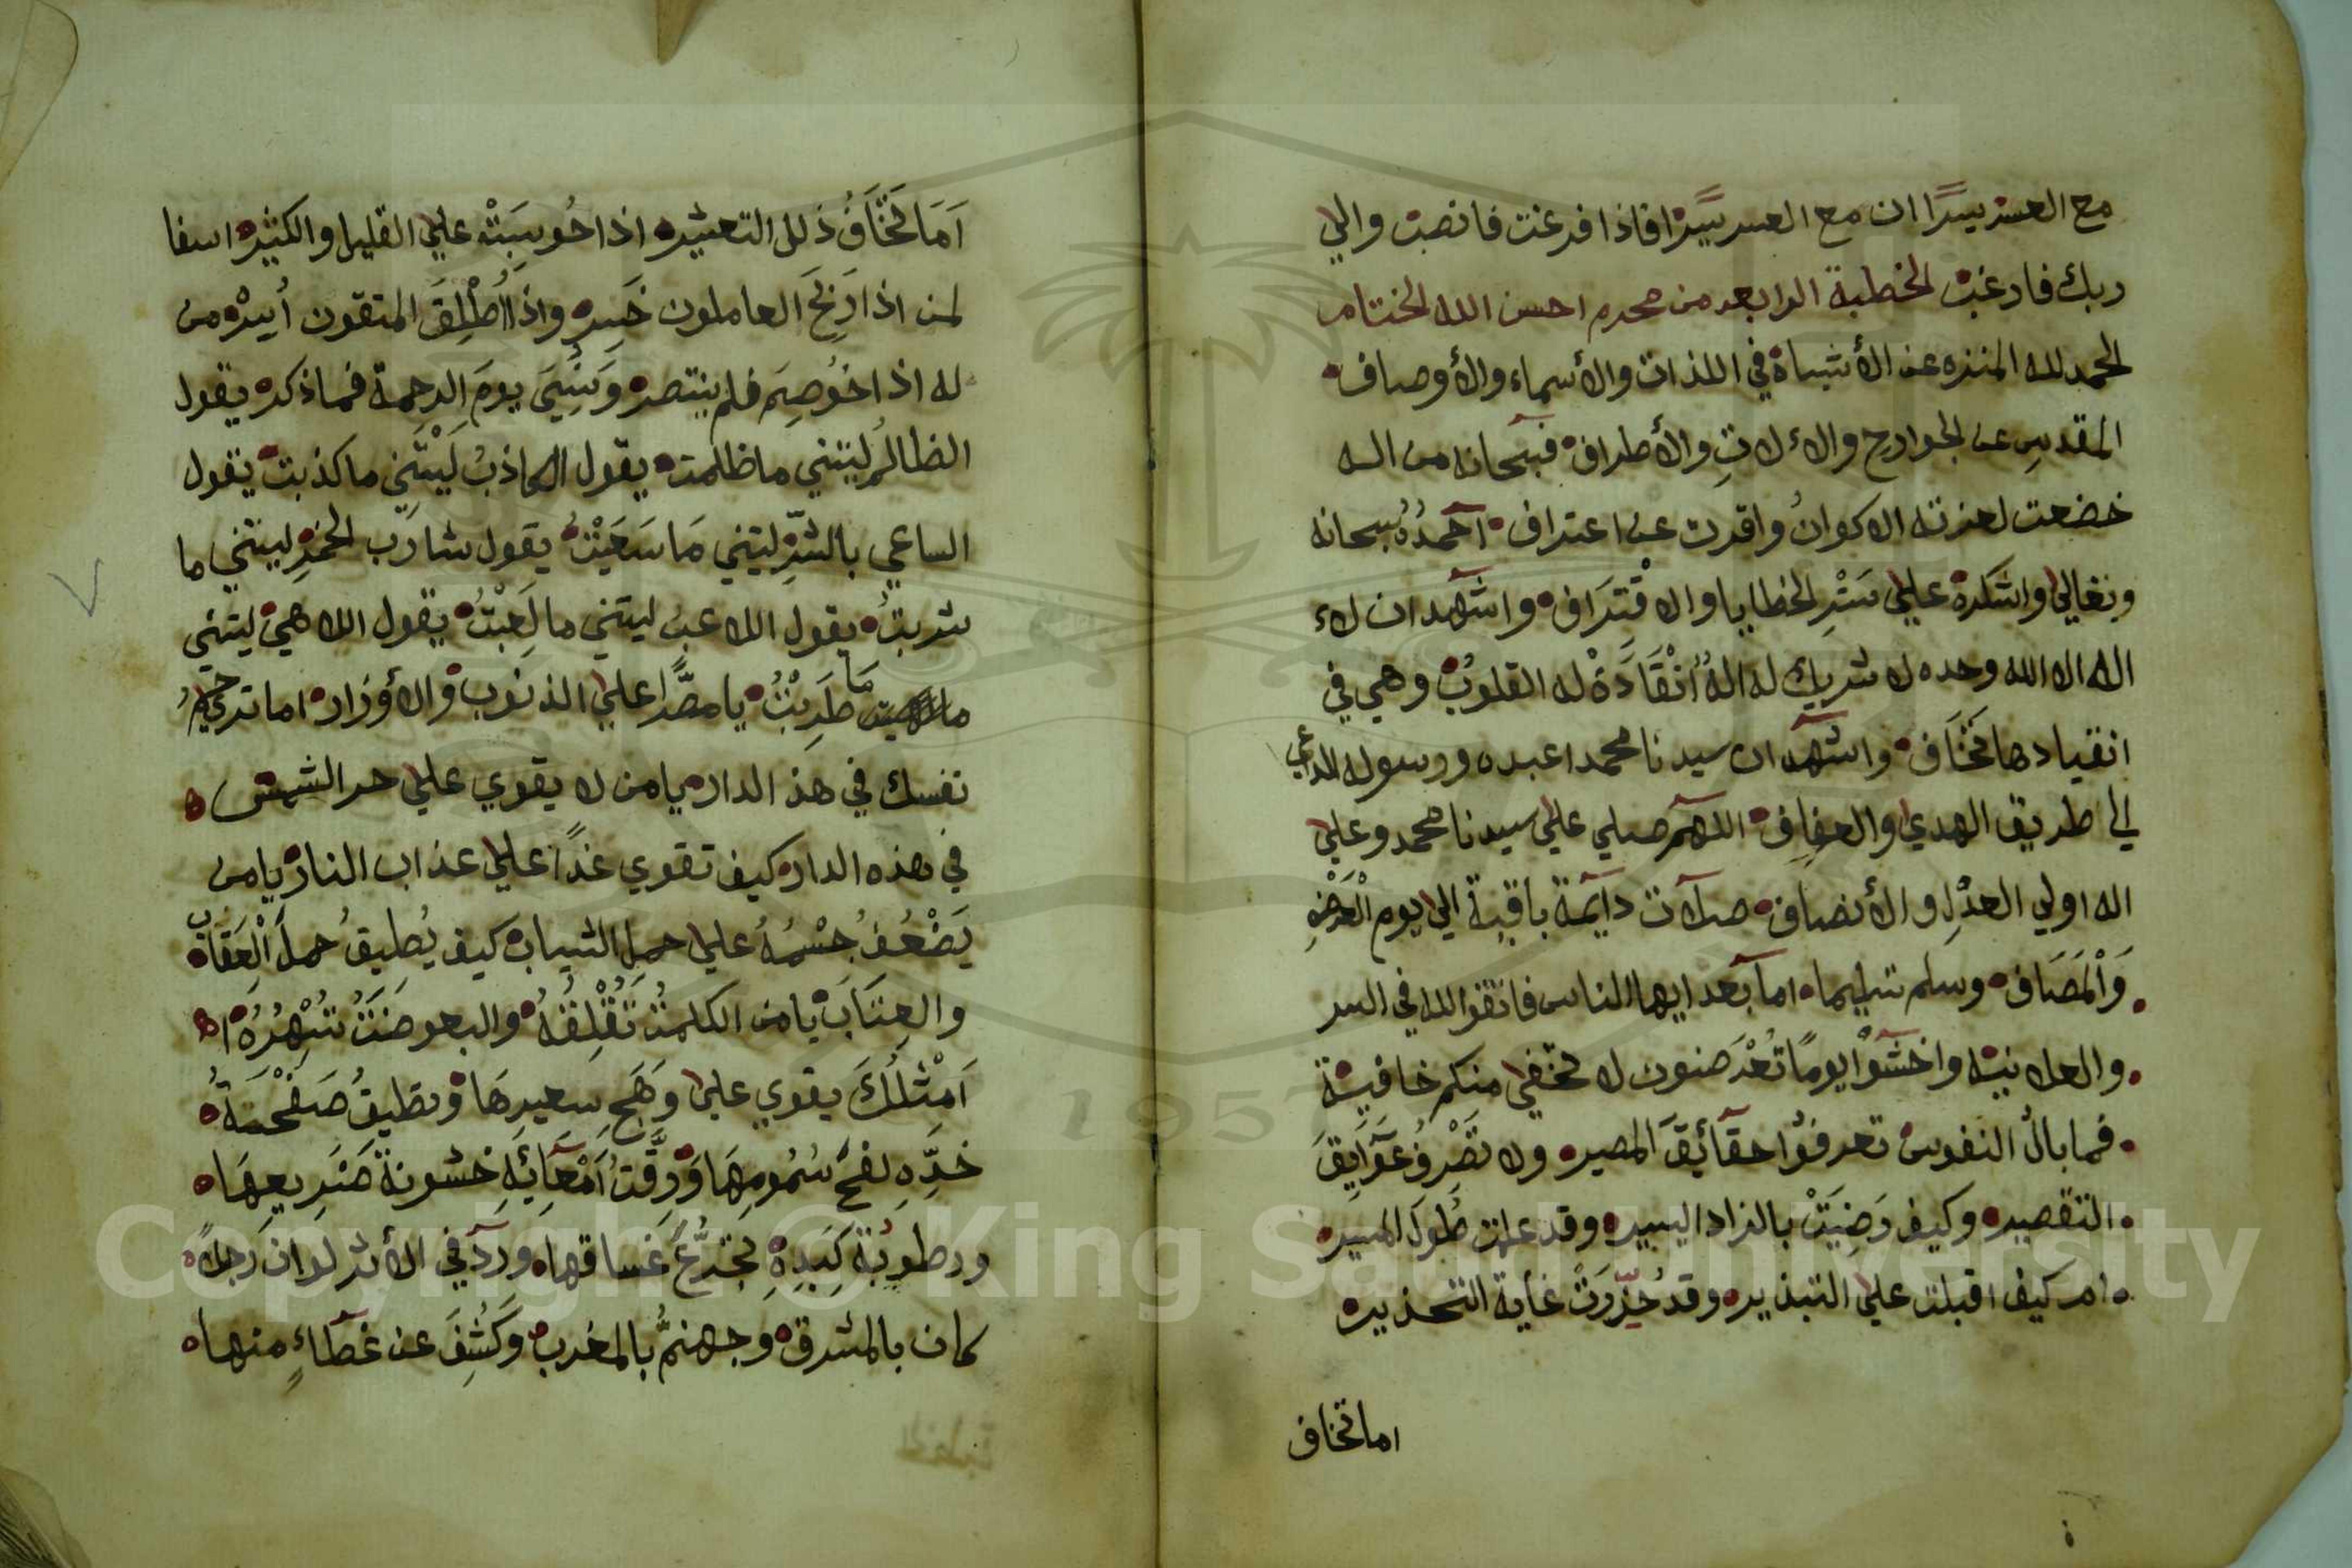 مع العسر يسرًا ان مع العسر يسرًا فاذا فرغت فانصب والي
ربك فارغب الخطبة الرابعه من محرم احسن الله الختام
الحمد لله المنزه عن الأشباه في اللذات والأسماء والأوصاف
المقدس عن الجوارح والاءلاتِ والأطراف فسبحانه من اله
خضعت لعزته الاكوانُ واقرت عن اعتراف احمدُهُ سبحانه
وتعالي واشكره علي سَتْرِ الخطايا والاقْتِرَاف واشهد ان لاء
اله الا الله وحده لا شريك له الهُ انْقَادَةْ له القلوبُ وهي في
انقيادها تخَاف واشهد ان سيدنا محمدا عبده ورسوله الداعي
الي طريق الهدي والعفاف اللهم صلي علي سيدنا محمد وعلي
اله اولي العدْلِ والأنصاف صلآت دآيمة باقية الي يوم الْعَرْضِ
وَالْمَصَاف وسلم تسليما اما بعد ايها الناس فاتقوا الله في السر
والعلانيه واخشوْا يومًا تُعْرَضون لا تخفي منكم خافية
فما بالُ النفوس تعرفُوا حقآئِقَ المصير ولا تصْرِفُ عَوَآيِقَ
التقصير وكيف رَضِيَتْ بالزاد اليسير وقد علمت طُولَ المسير
ام كيف اقبلت علي التبذير وقد حُذِّرَتْ غاية التحذير
اما تخاف
اَمَا تخَافُ ذلل التعثير اذا حُوسِبَتْ علي القليل والكثير اسفا
لمن اذا رَبِحَ العاملون خَسِر واذا اُطْلِقَ المتقون اُسِرْ من
له اذا خُوصِمَ فلم ينتصر وَنُسِيَ يومَ الرحمة فما ذكر يقول
الظالمُ ليتني ما ظلمت يقول الكاذبُ لَيْتَنِي ما كذبت يقول
الساعي بالشَّرِّ ليتني مَا سَعَيْتُ يقول شارب الخمرِ ليتني ما
شربتُ يقول اللاعب ليتني ما لَعِبْتُ يقول اللاهيْ ليتني
ما ما طَرِبْتُ يا مصًّرا علي الذنوب والأوْزار اما ترحمُ
نفسك في هذ الدار يا من لا يقوي علي حر الشمس
في هذه الدار كيف تقوي غدًا علي عذاب النار يا من
يَضْعُفُ جسْمُهُ علي حمل الثياب كيف يُطيقُ حملَ الْعِقَاب
والعِتَابَ يا من الكلمتُ تُقْلِقُهُ والبعوضَتُ تُسْهِرُهُ
اَمِثْلُكَ يقوي علي وَهَجِ سعيرِهَا وتطيقُ صَفْحَةُ
خدِّهِ لفحَ سُمُومِهَا وَرِقَّتُ اَمْعَآئِهِ خشونةَ ضَرِيعِهَا
ورطوبُةَ كَبِدِهِ تجَرُّعَ غَساقها ورد في الأثر لو ان رَجلاً
كان بالمشرق وجهنمُ بالمغرب وَكُشِفَ عن غطاءٍ منها
Copyright © King Saud University
1957